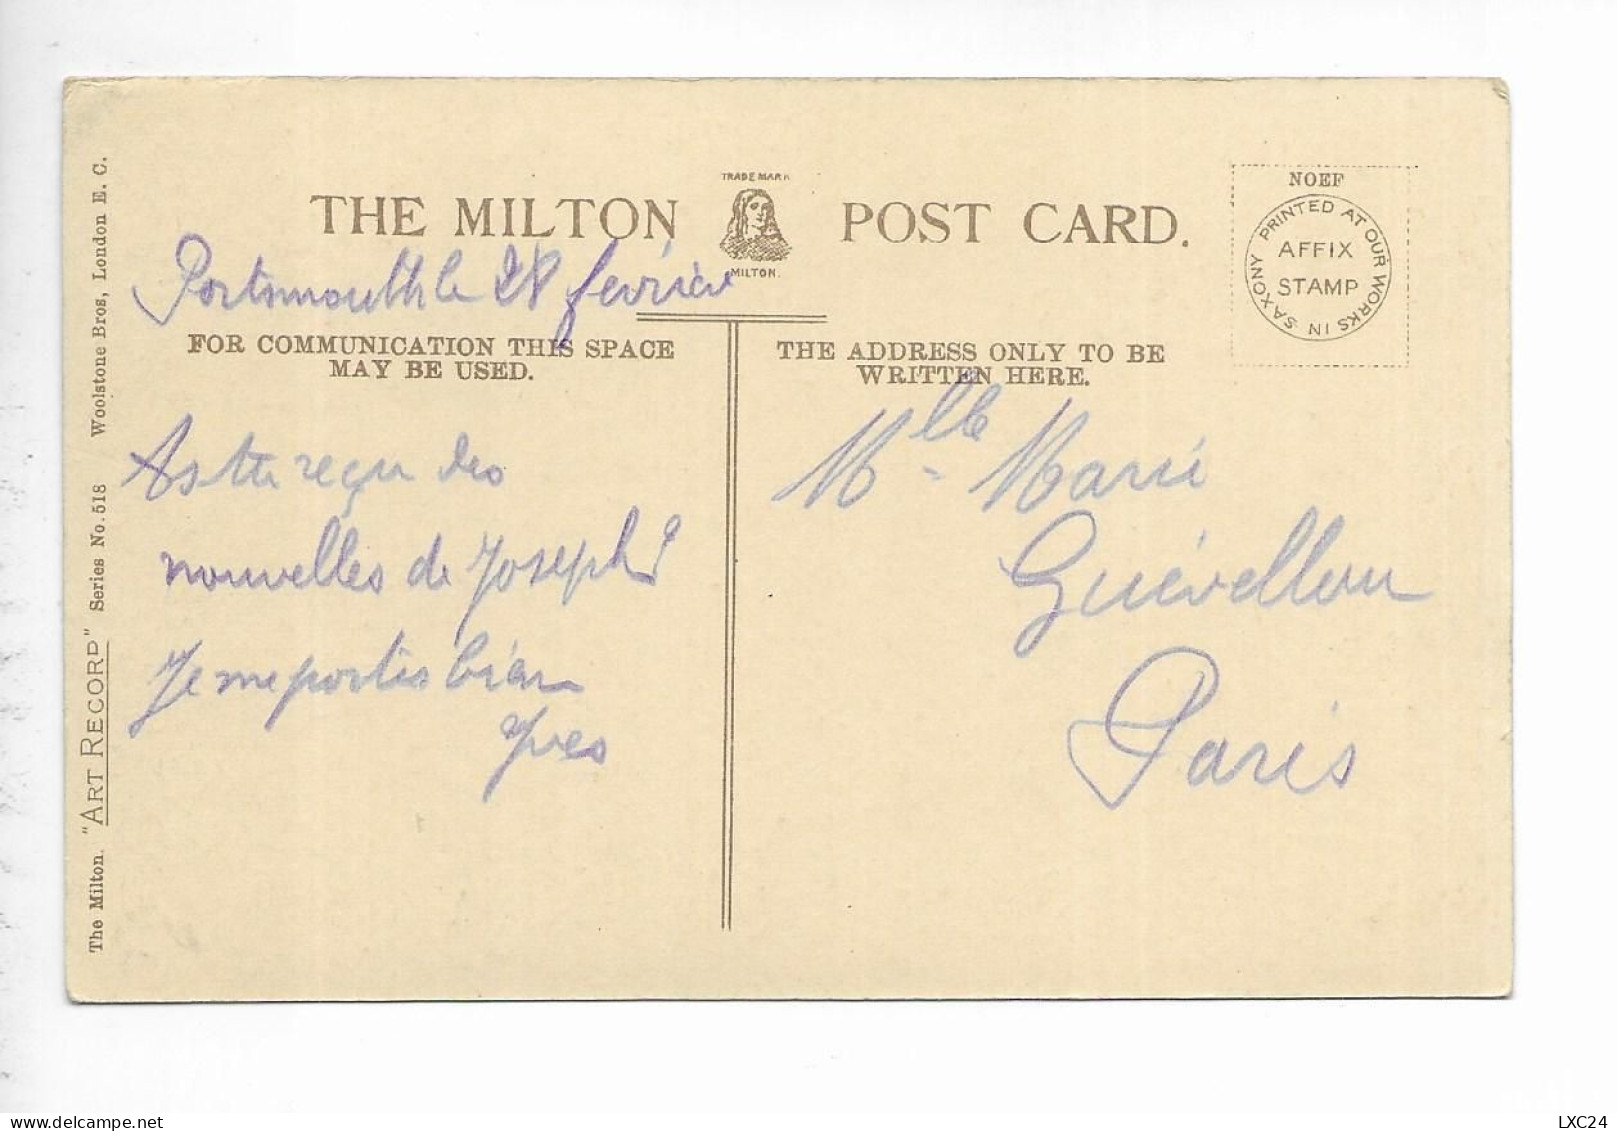 TRADE MARK
THE MILTON POST CARD.
MILTON.
NOEF
PRINTED AT OUR WORKS IN SAXONY
AFFIX
STAMP
Portsmouth le 28 fevrier
FOR COMMUNICATION THIS SPACE
MAY BE USED.
THE ADDRESS ONLY TO BE
WRITTEN HERE.
As tu reçu des
nouvelles de Joseph?
Je me portes bien
Yves
Mlle Marie
Guévellou
Paris
The Milton. "ART RECORD" Series No. 518 Woolstone Bros, London E. C.
LXC24